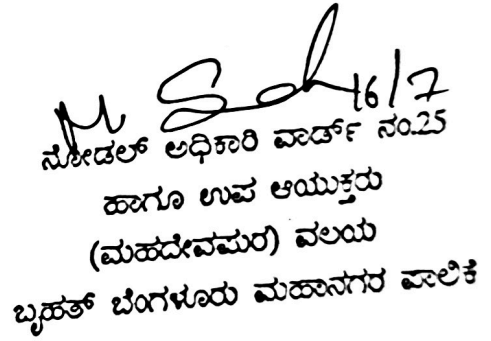 16/7
ನೋಡಲ್ ಅಧಿಕಾರಿ ವಾರ್ಡ್ ನಂ.25
ಹಾಗೂ ಉಪ ಆಯುಕ್ತರು
(ಮಹದೇವಪುರ) ವಲಯ
ಬೃಹತ್ ಬೆಂಗಳೂರು ಮಹಾನಗರ ಪಾಲಿಕೆ